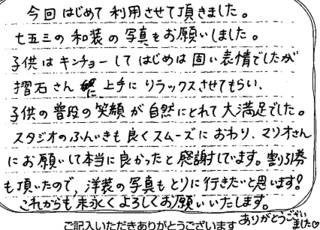 今回はじめて利用させて頂きました。
七五三の和装の写真をお願いしました。
子供はキンチョーしてはじめは固い表情でしたが
摺石さん 上手にリラックスさせてもらい、
子供の普段の笑顔が自然にとれて大満足でした。
スタジオのふんいきも良くスムーズにおわり、マリオさん
にお願いして本当に良かったと感謝しています。割引券
も頂いたので、洋装の写真もとりに行きたいと思います!
これからも末永くよろしくお願いいたします。
ご記入いただきありがとうございます
ありがとうござい
ました